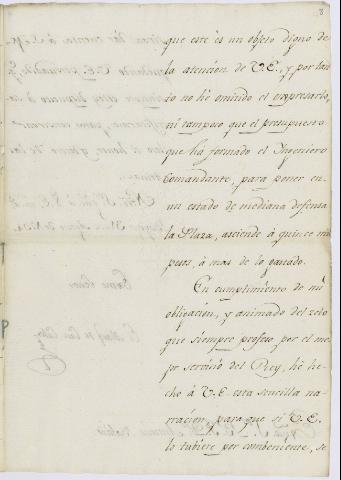 8
que este es un objeto digno de
la atencion de V.E., y por tan
to no hé omitido el expresarlo,
ni tampoco que el presupuesto
que há formado el Ingeniero
Comandante, para poner en
un estado de mediana defensa
la Plaza, asciende à quince mil
pesos, à mas de lo gastado.
En cumplimiento de mi
obligacion, y animado del zelo
que siempre profeso por el me
jor servicio del Rey, hé he
cho à V.E. esta sencilla na
rracion, para que si V.E.
lo tubiere por combeniente, se